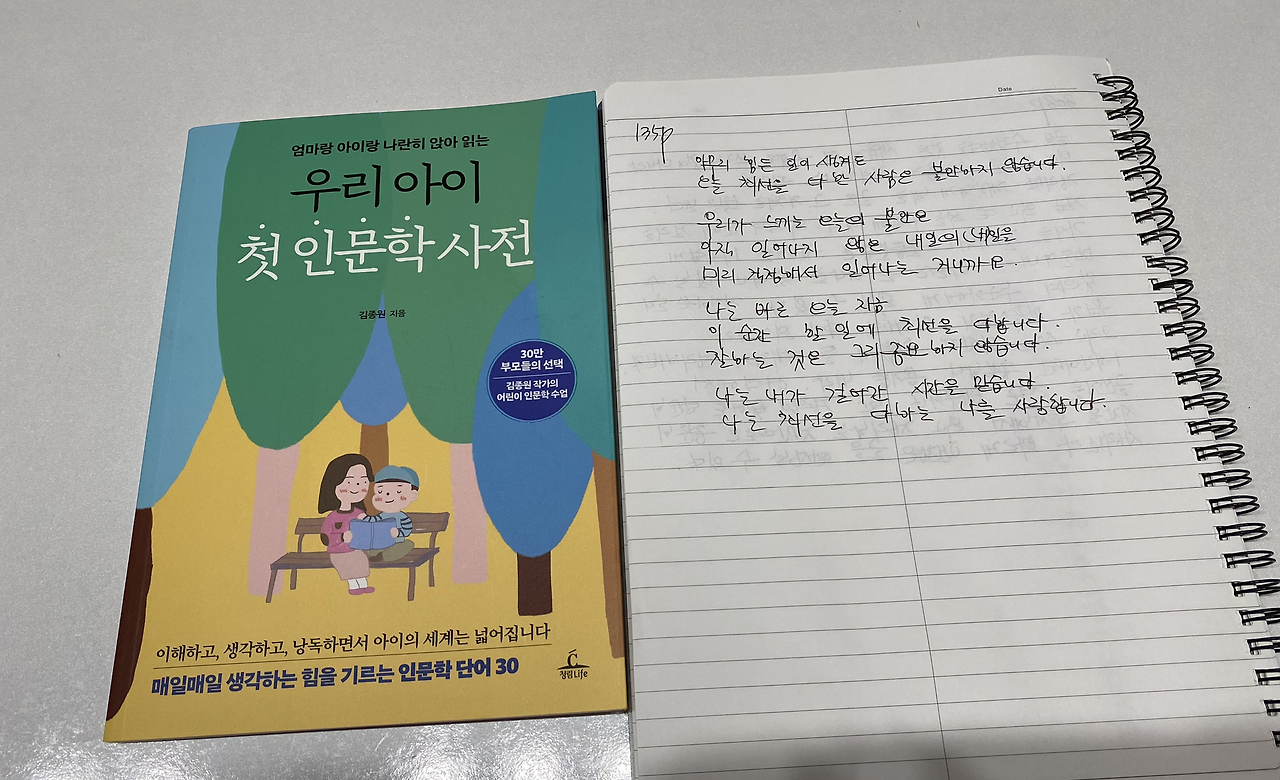 엄마랑 아이랑 나란히 앉아 읽는
우리 아이
첫 인문학 사전
김종원 지음
30만
부모들의 선택
김종원 작가의
어린이 인문학 수업
이해하고, 생각하고, 낭독하면서 아이의 세계는 넓어집니다
매일매일 생각하는 힘을 기르는 인문학 단어 30
청림Life
Date
135p
아무리 힘든 일이 생겨도
오늘 최선을 다한 사람은 불안하지 않습니다.
우리가 느끼는 오늘의 불안은
아직 일어나지 않은 내일의 (내일을
미리 걱정해서 일어나는 거니까요.
나는 바로 오늘 지금
이 순간 할 일에 최선을 다합니다.
잘하는 것은 그리 중요하지 않습니다.
나는 내가 걸어간 시간을 믿습니다.
나는 최선을 다하는 나를 사랑합니다.